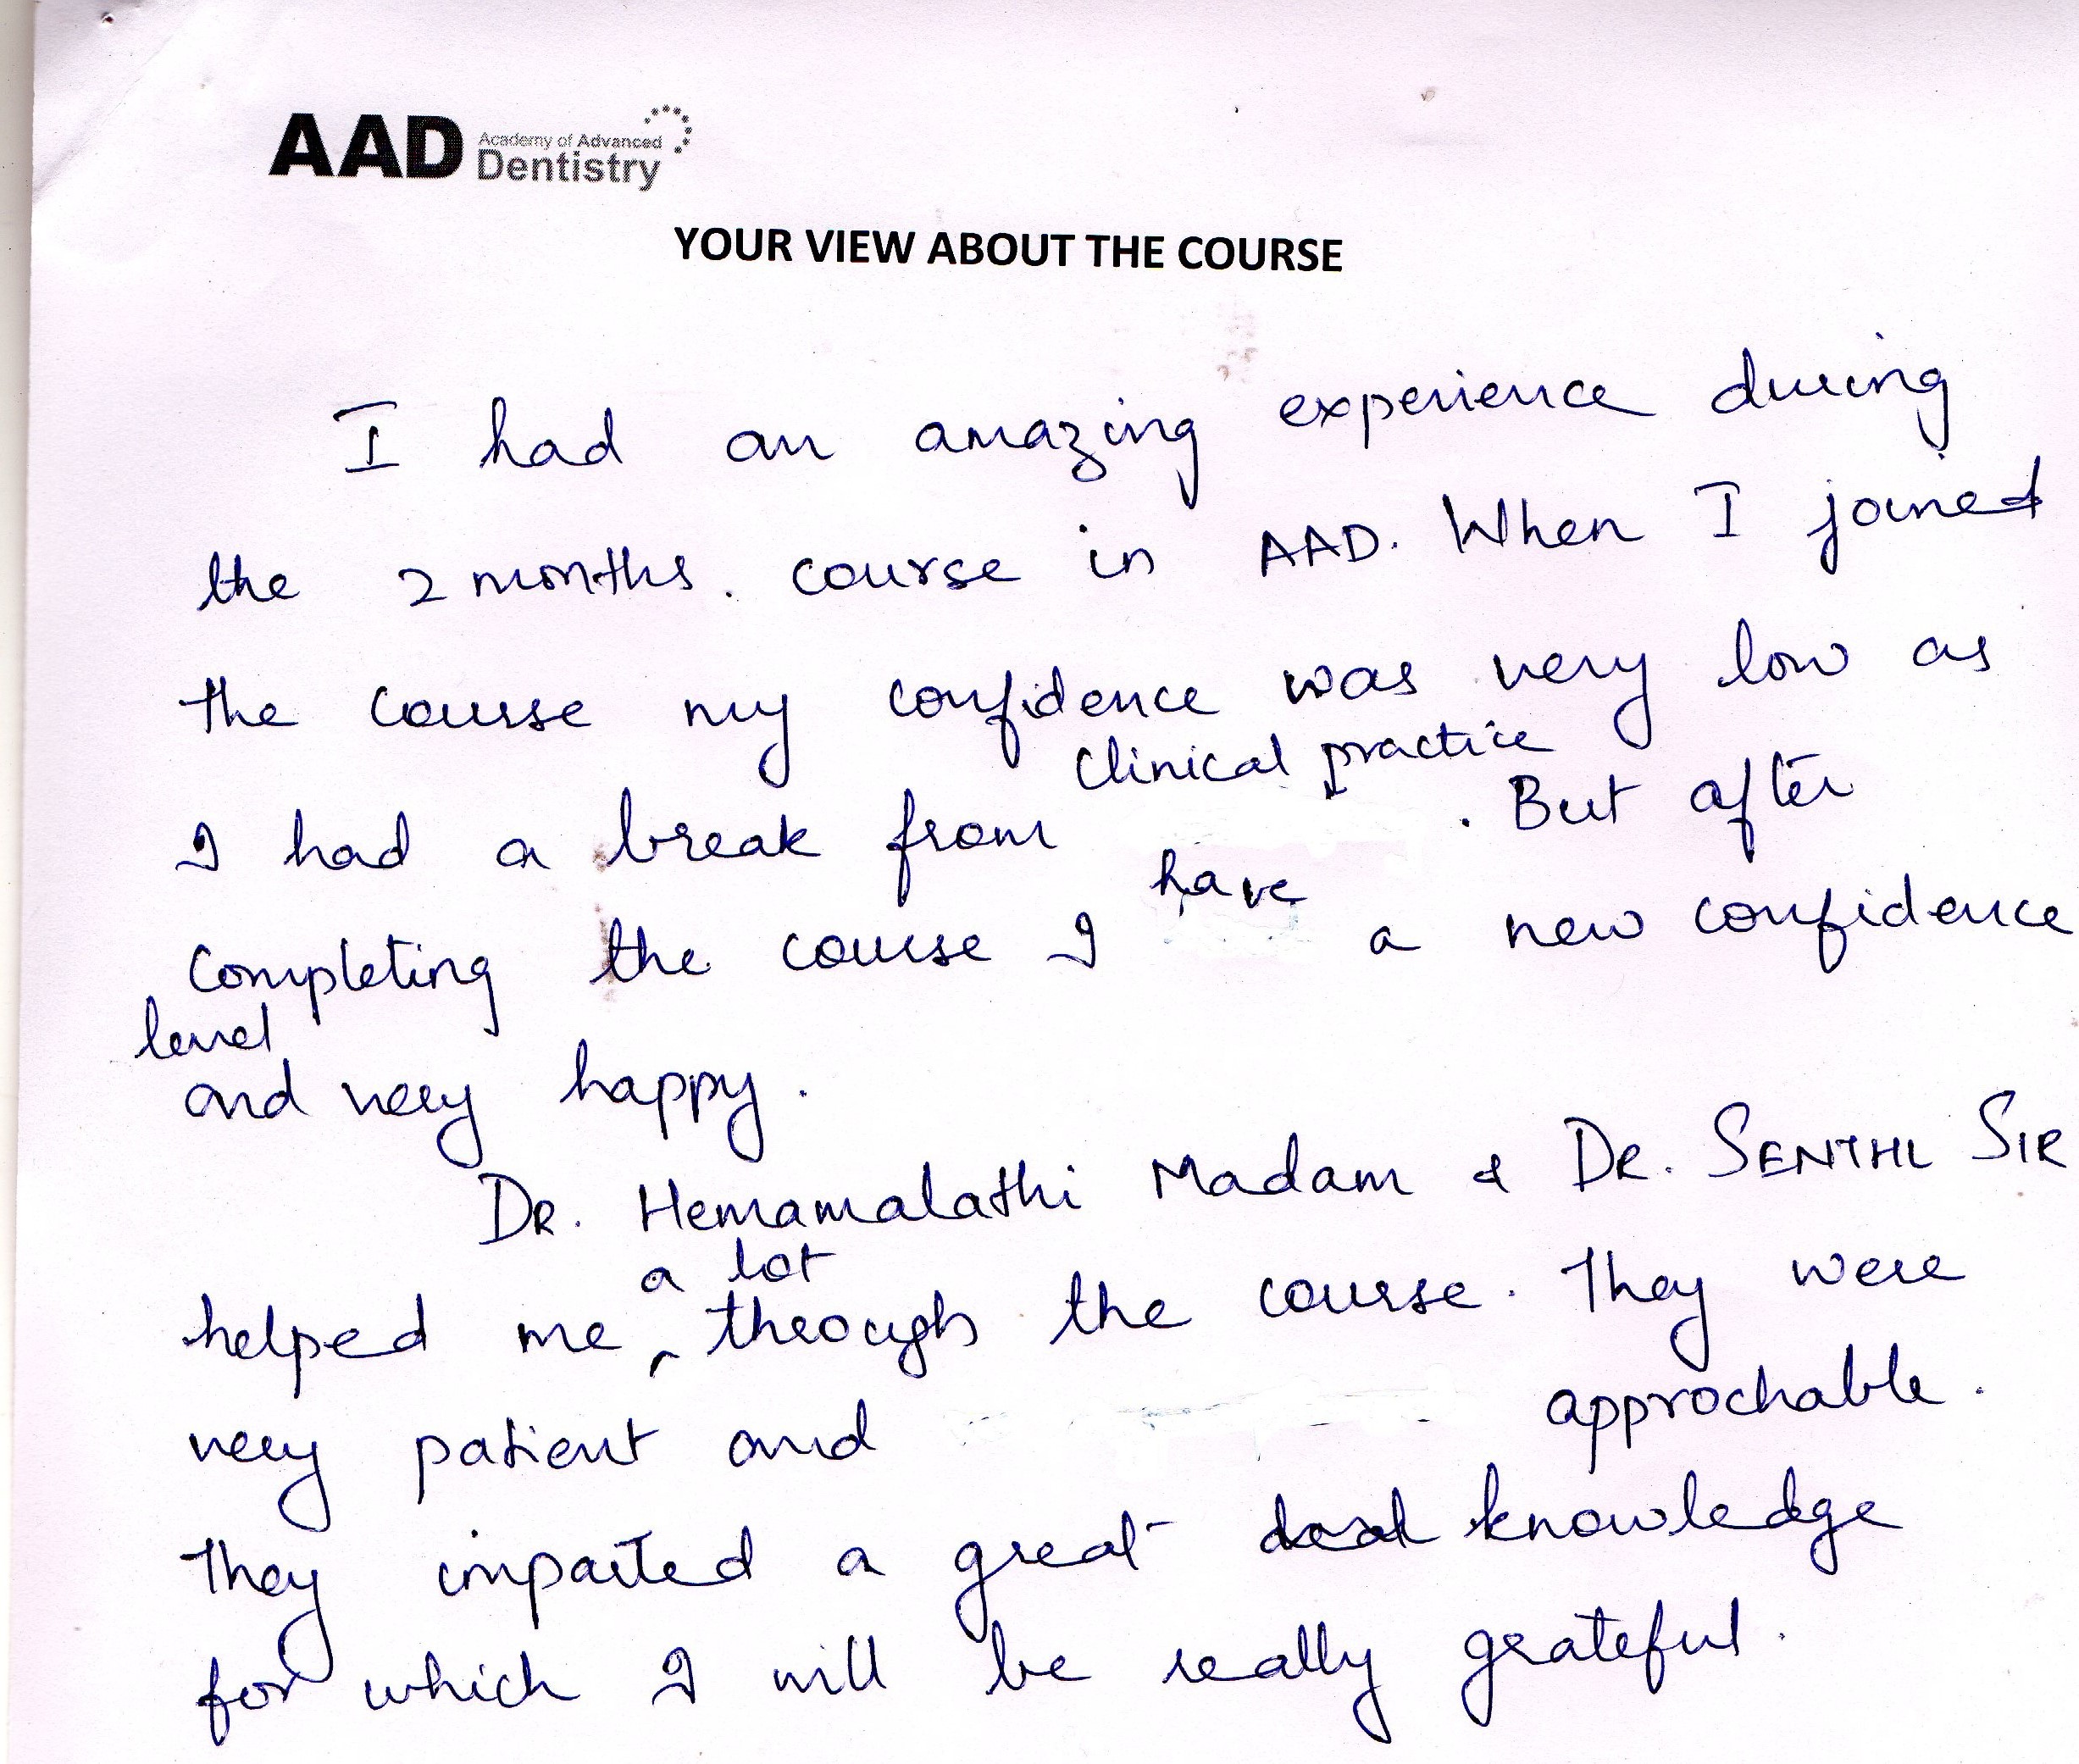 AAD Academy of Advanced Dentistry
YOUR VIEW ABOUT THE COURSE
I had an amazing experience during
the 2 months. course in AAD. When I joined
the course my confidence was very low as
I had a break from clinical practice. But after
completing the course I have a new confidence
level
and very happy.
DR. Hemamalathi Madam & DR. SENTHIL SIR
a lot
helped me ‸ through the course. They were
very patient and approchable.
They imparted a great deal knowledge
for which I will be really grateful.